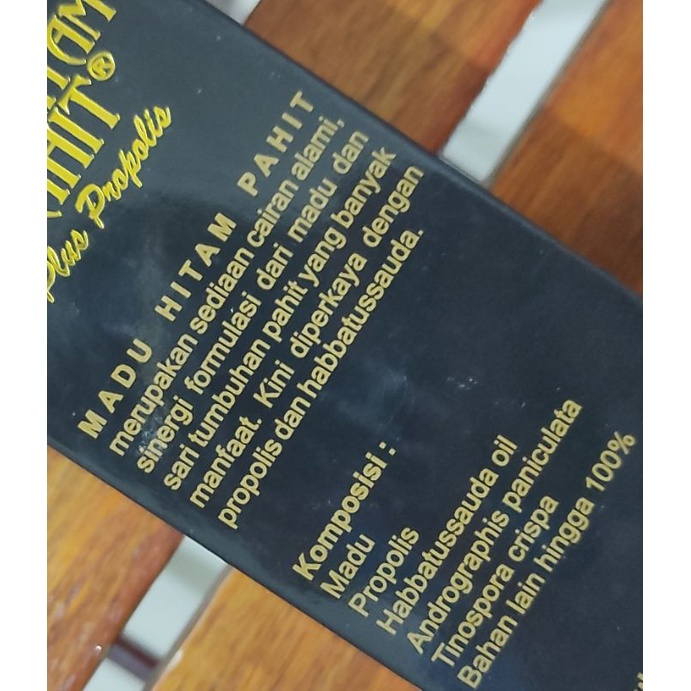 PAHIT®
Plus Propolis
MADU HITAM PAHIT
merupakan sediaan cairan alami,
sinergi formulasi dari madu dan
sari tumbuhan pahit yang banyak
manfaat. Kini diperkaya dengan
propolis dan habbatussauda.
Komposisi :
Madu
Propolis
Habbatussauda oil
Andrographis paniculata
Tinospora crispa
Bahan lain hingga 100%